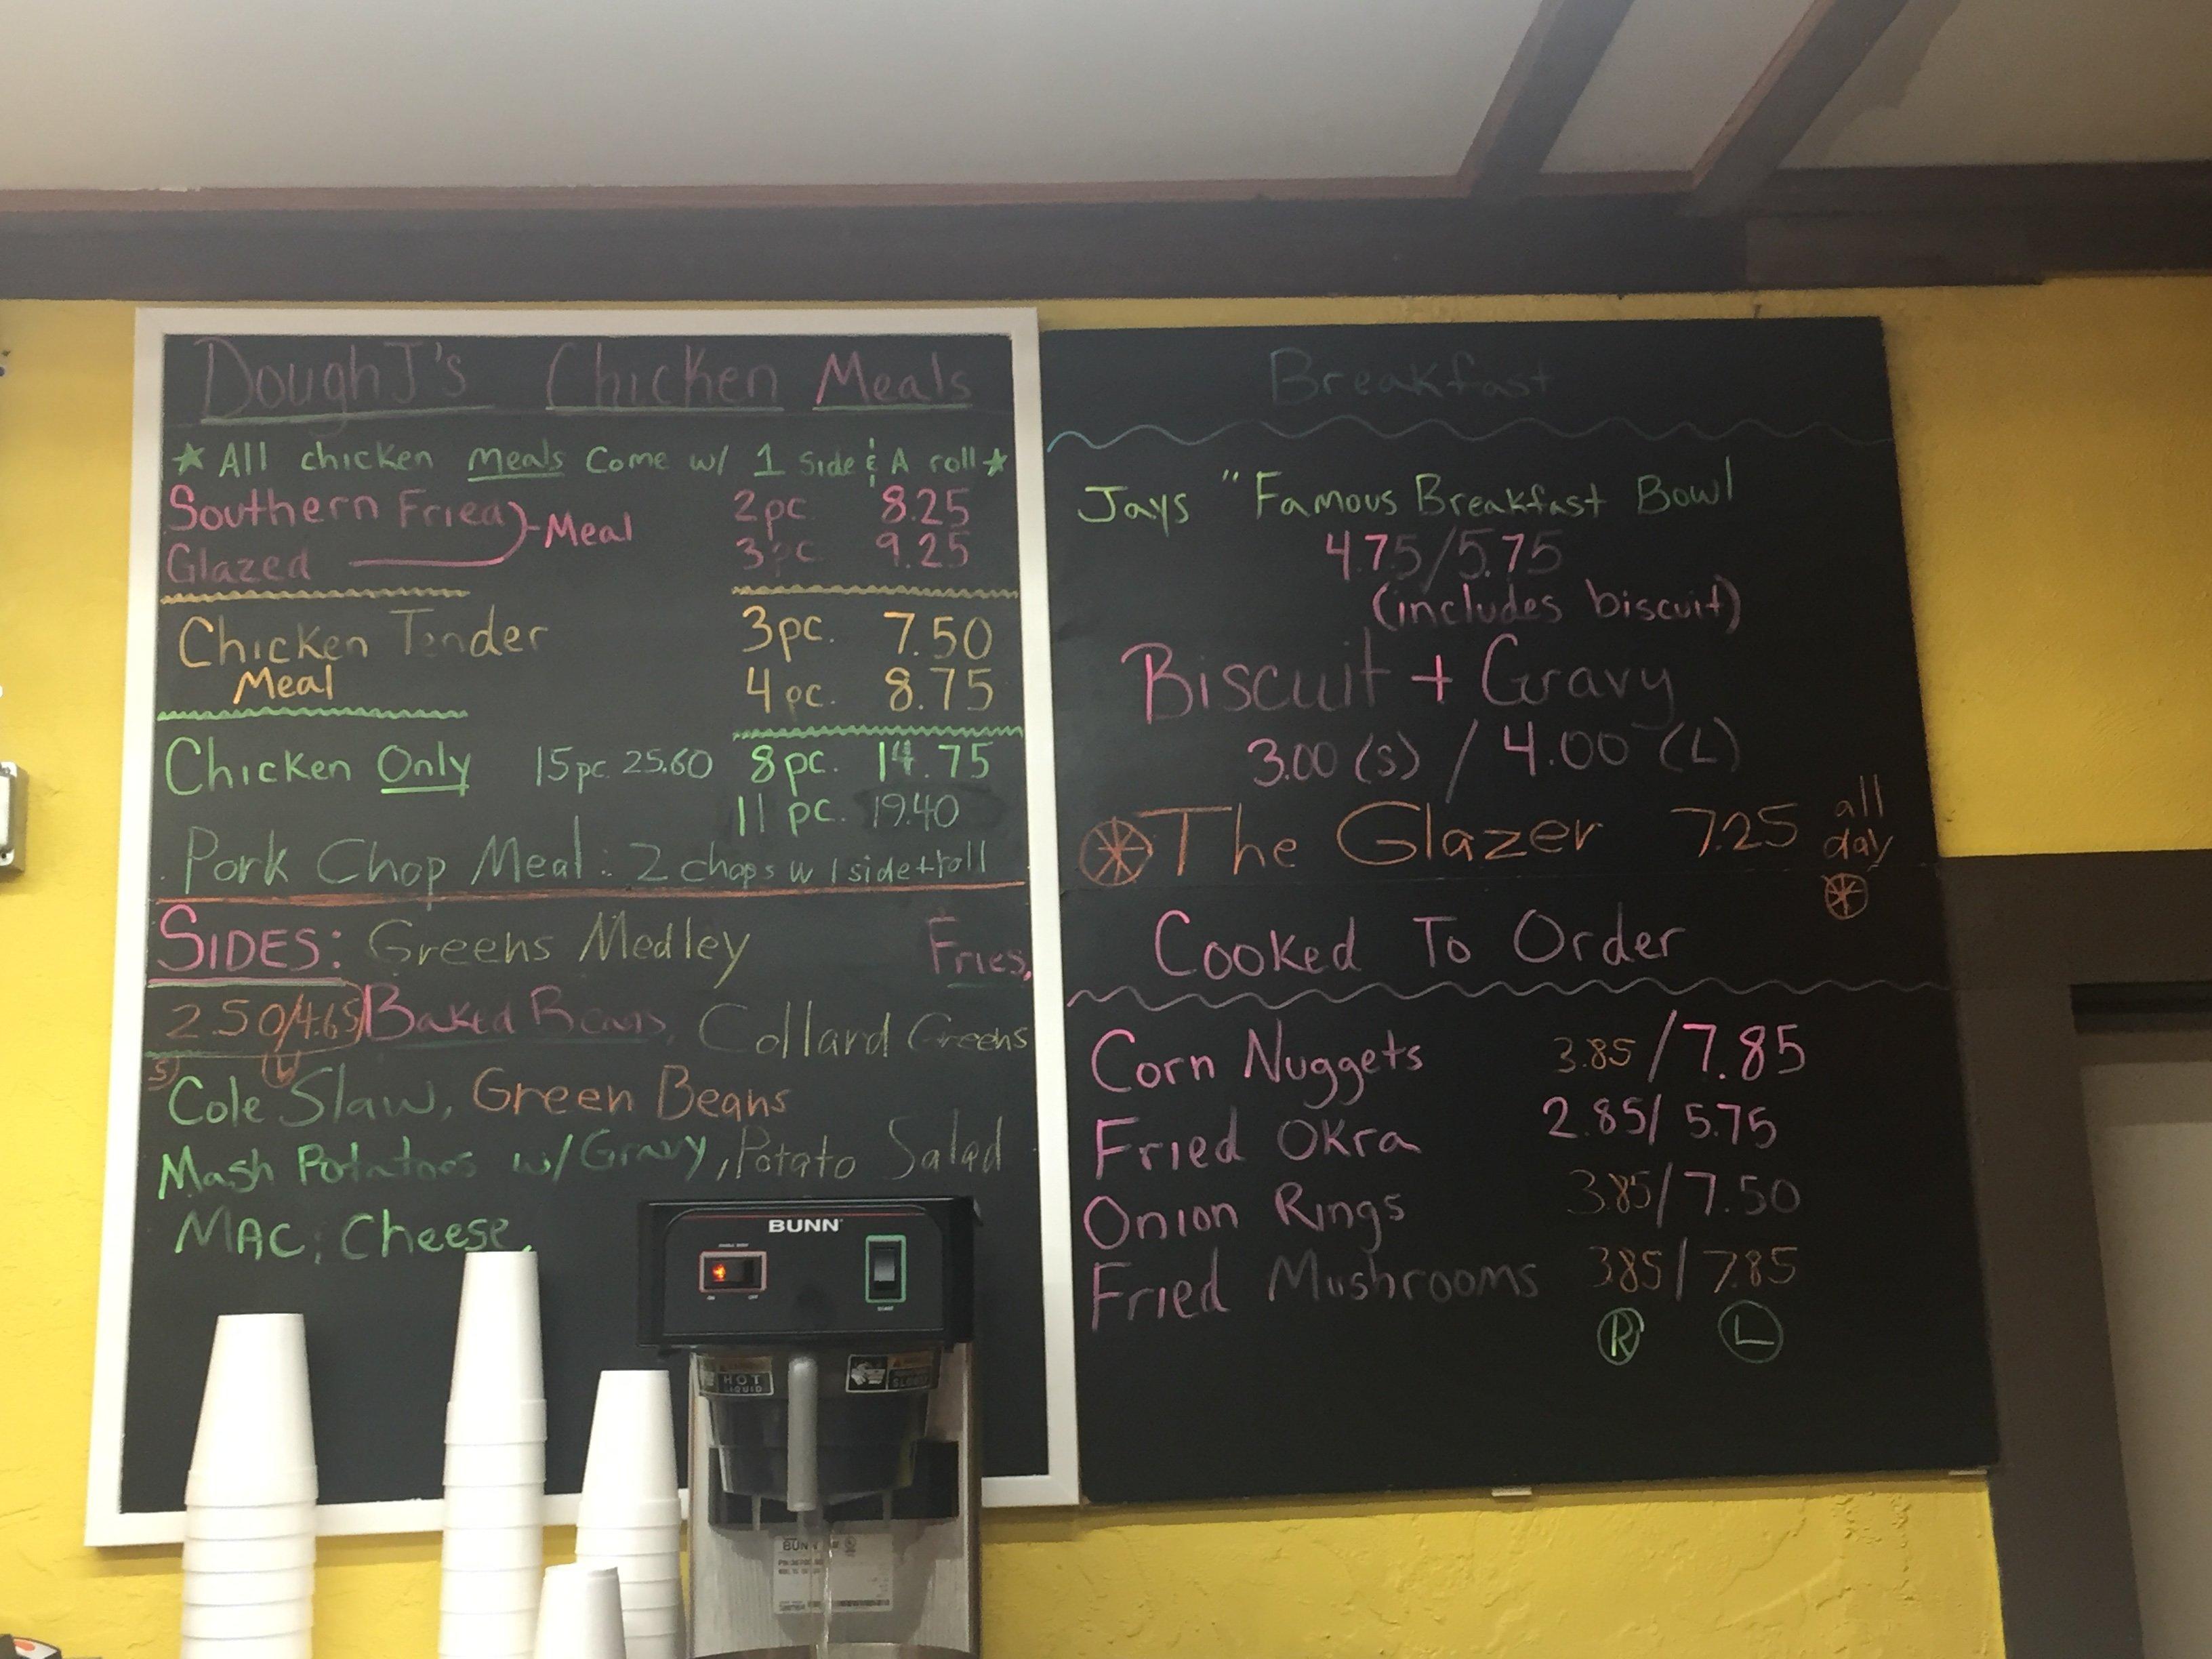 DoughJ's Chicken Meals
★ All chicken meals Come w/ 1 Side & A roll ★
Southern Fried
Glazed
Meal
2pc. 8.25
3pc 9.25
Chicken Tender
Meal
3pc. 7.50
4pc. 8.75
Chicken Only 15pc. 25.60 8pc. 14.75
11 pc. 19.40
Pork Chop Meal: 2 chops w/ 1 side + roll
SIDES: Greens Medley Fries,
2.50/4.65 Baked Beans, Collard Greens
S L
Cole Slaw, Green Beans
Mash Potatoes w/ Gravy, Potato Salad
MAC & Cheese,
Breakfast
Jays "Famous Breakfast Bowl
4.75/5.75
(includes biscuit)
Biscuit + Gravy
3.00 (S) / 4.00 (L)
The Glazer 7.25 all day
Cooked To Order
Corn Nuggets 3.85/7.85
Fried Okra 2.85/5.75
Onion Rings 3.85/7.50
Fried Mushrooms 3.85/7.85
R L
BUNN
HOT
LIQUID
BUNN